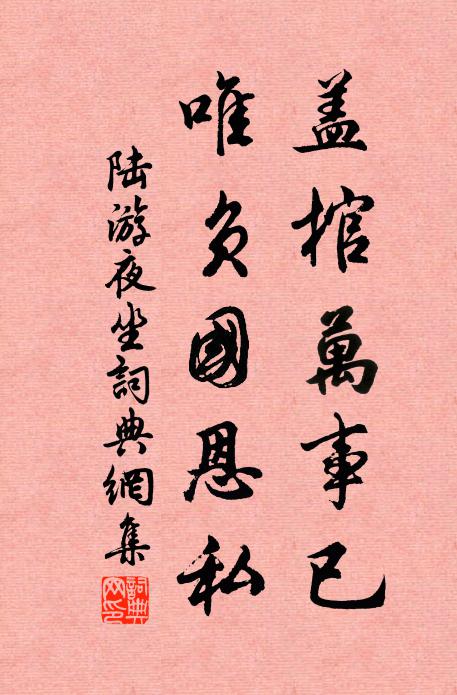 盖棺萬事已
唯負國恩私
陆游夜坐詞典網集
詞典網印